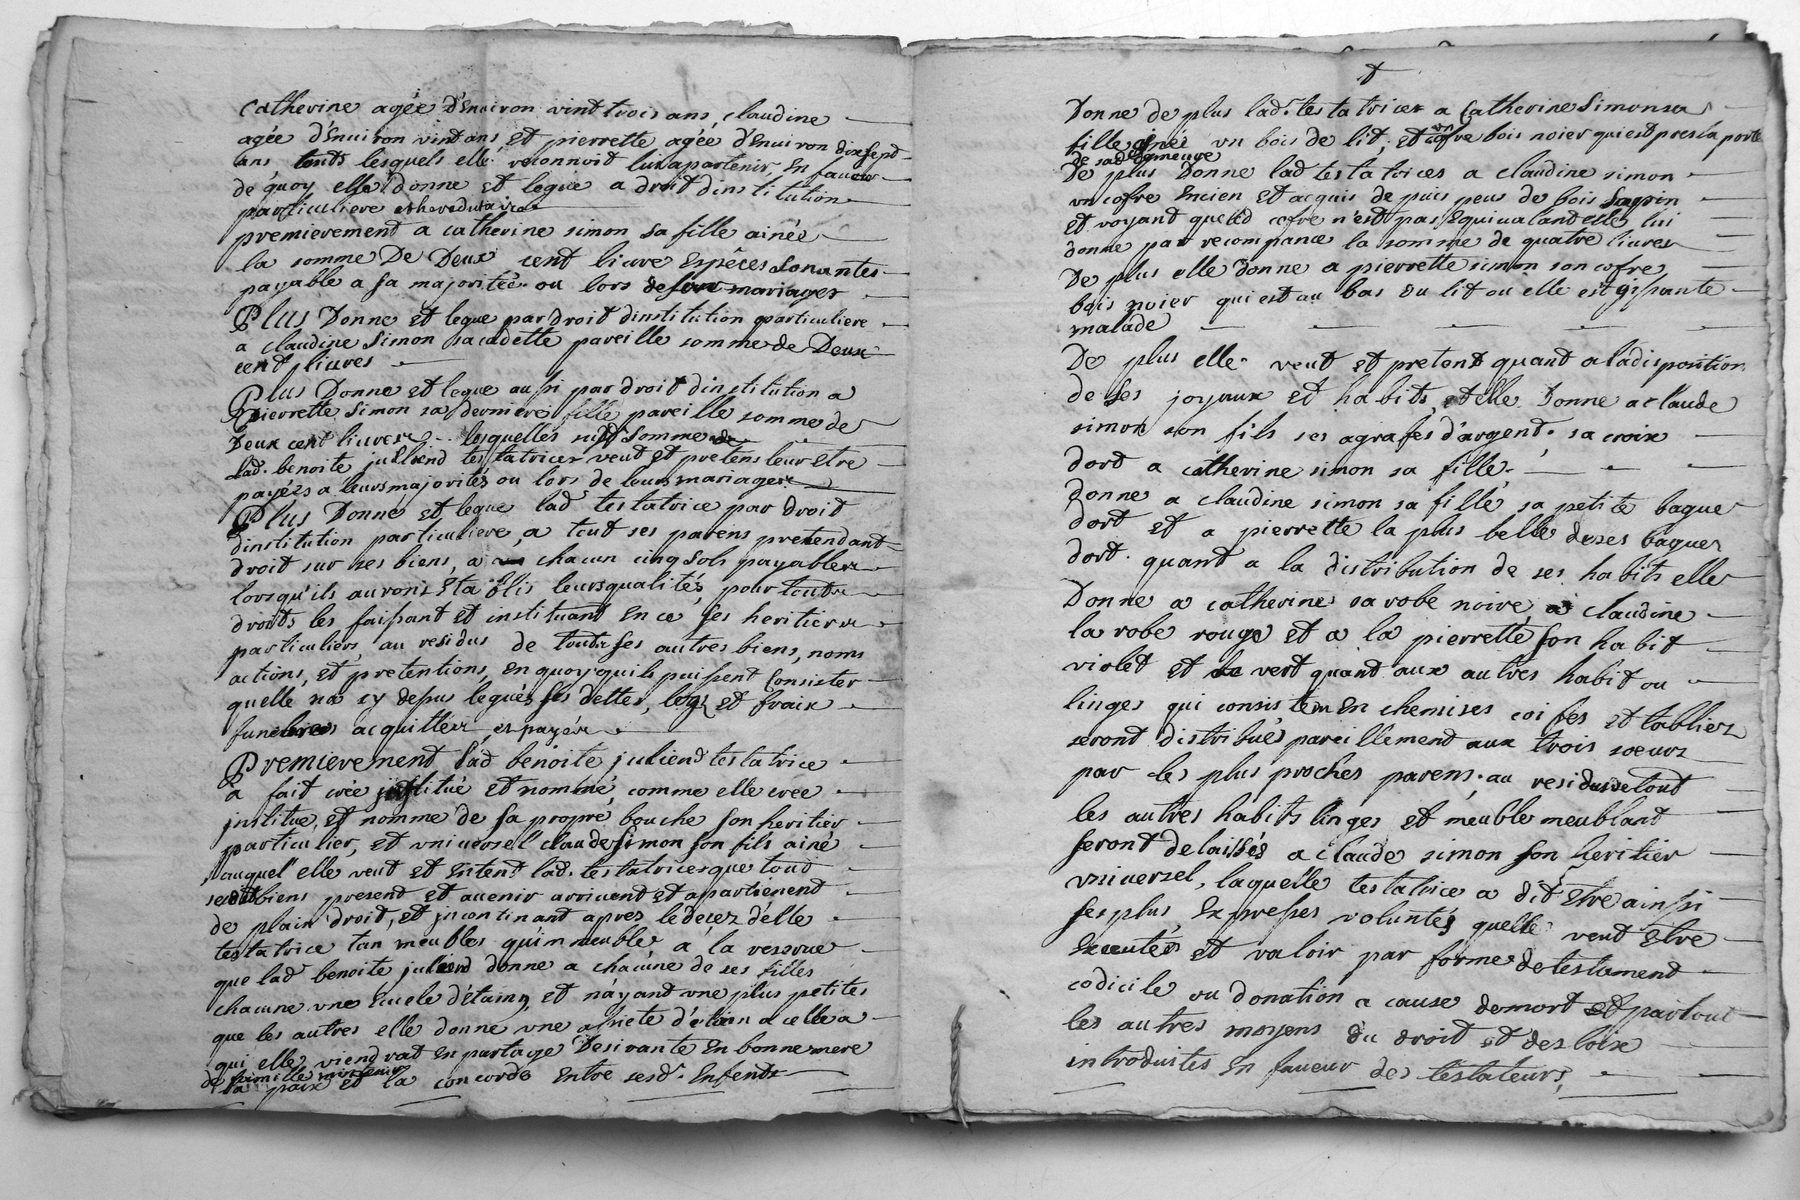 Catherine agée d'enuiron vint trois ans, claudine
agée d'enuiron vint ans, et pierrette agée d'enuiron dix sept
ans touts lesquels elle reconnoit luy apartenir, en faueur
de quoy elle donne et legue a droit dinstitution
particuliere et hereditaire
premierement a catherine simon sa fille ainée
la somme De Deux cent liure Espêces sonantes
payable a sa majoritée ou lors de son mariages
Plus Donne et legue par droit dinstitution particuliere
a claudine Simon sa cadette pareille somme de Deux
cent liures
Plus Donne et legue aussi par droit dinstitution a
Pierrette Simon sa derniere fille pareille somme de
Deux cent liures lesquelles susd somme
lad. benoite juliend testatrices veut et pretens leur Etre
payées a leurs majorités ou lors de leurs mariages
Plus Donne et legue lad testatrice par droit
dinstitution particuliere, a tout ses parens pretendant
droit sur ses biens, a chacun cinq sols payables
lorsqu'ils auront Etablis leurs qualités, pour touts
droits les faisant et instituant en ce ses heritiers
particuliers, au residus de touts ses autres biens, noms
actions, et pretentions, en quoy quils puissent Consister
quelle na cy depus legués ses dettes, legs et fraix
funebres acquittes et payés
Premierement lad benoite juliend testatrice
a fait crée institué et nommé, comme elle crée
institue, et nomme de sa propre bouche son heritier
particulier, et vniuersel claude Simon son fils ainé
auquel elle veut et Entent lad. testatrices que tout
sesdt biens present et auenir arriuent et apartienent
de plain droit, et jncontinant apres le deces d'elle
testatrice tan meubles qu'immeubles a la reserue
que lad benoite juliend donne a chacune de ses filles
chacune vne Ecuele d'étaing, et n'áyant vne plus petites
que les autres elle donne vne assiete d'étain a celle a
qui elle viendrat en partage Desirante En bonne mere
de famille maintenir
la paix et la concorde entre sesd. Enfents
Donne de plus lad. testatrices a Catherine Simon sa
fille ainée vn bois de lit, et vn cofre bois noier qui est pres la porte
de sad demeure
De plus Donne lad testatrices a claudine simon
vn cofre Encien et acquis de puis peus de bois Sapin
et voyant que led cofre n'est pas Equiualant elle lui
donne par recompance la somme de quatre liures
De plus elle donne a pierrette simon son cofre
bois noier qui est au bas du lit ou elle est gissante
malade
De plus elle veut et pretent quant a la disposition
de ses joyaux et habits, et elle Donne a claude
simon son fils ses agrafes d'argent, sa croix
dort a catherine simon sa fille
Donne a claudine simon sa fille sa petite bague
dort et a pierrette la plus belle de ses bagues
dort. quant a la distribution de ses habits elle
Donne a catherine sa robe noire, a claudine
la robe rouge et a la pierrette son habit
violet et le vert quant aux autres habit ou
linges qui consistent en chemises coifes et tabliers
seront distribués pareillement aux trois soeurs
par les plus proches parens, au residus de tout
les autres habits linges et meubles meublant
seront delaissés a claude simon son heritier
vniuersel, laquelle testatrice a dit Etre ainssi
ses plus Expresses voluntés quelle veut Etre
Executées et valoir par forme de testament
codicile ou donation a cause de mort et par tout
les autres moyens du droit et des loix
introduites en faueur des testateurs,